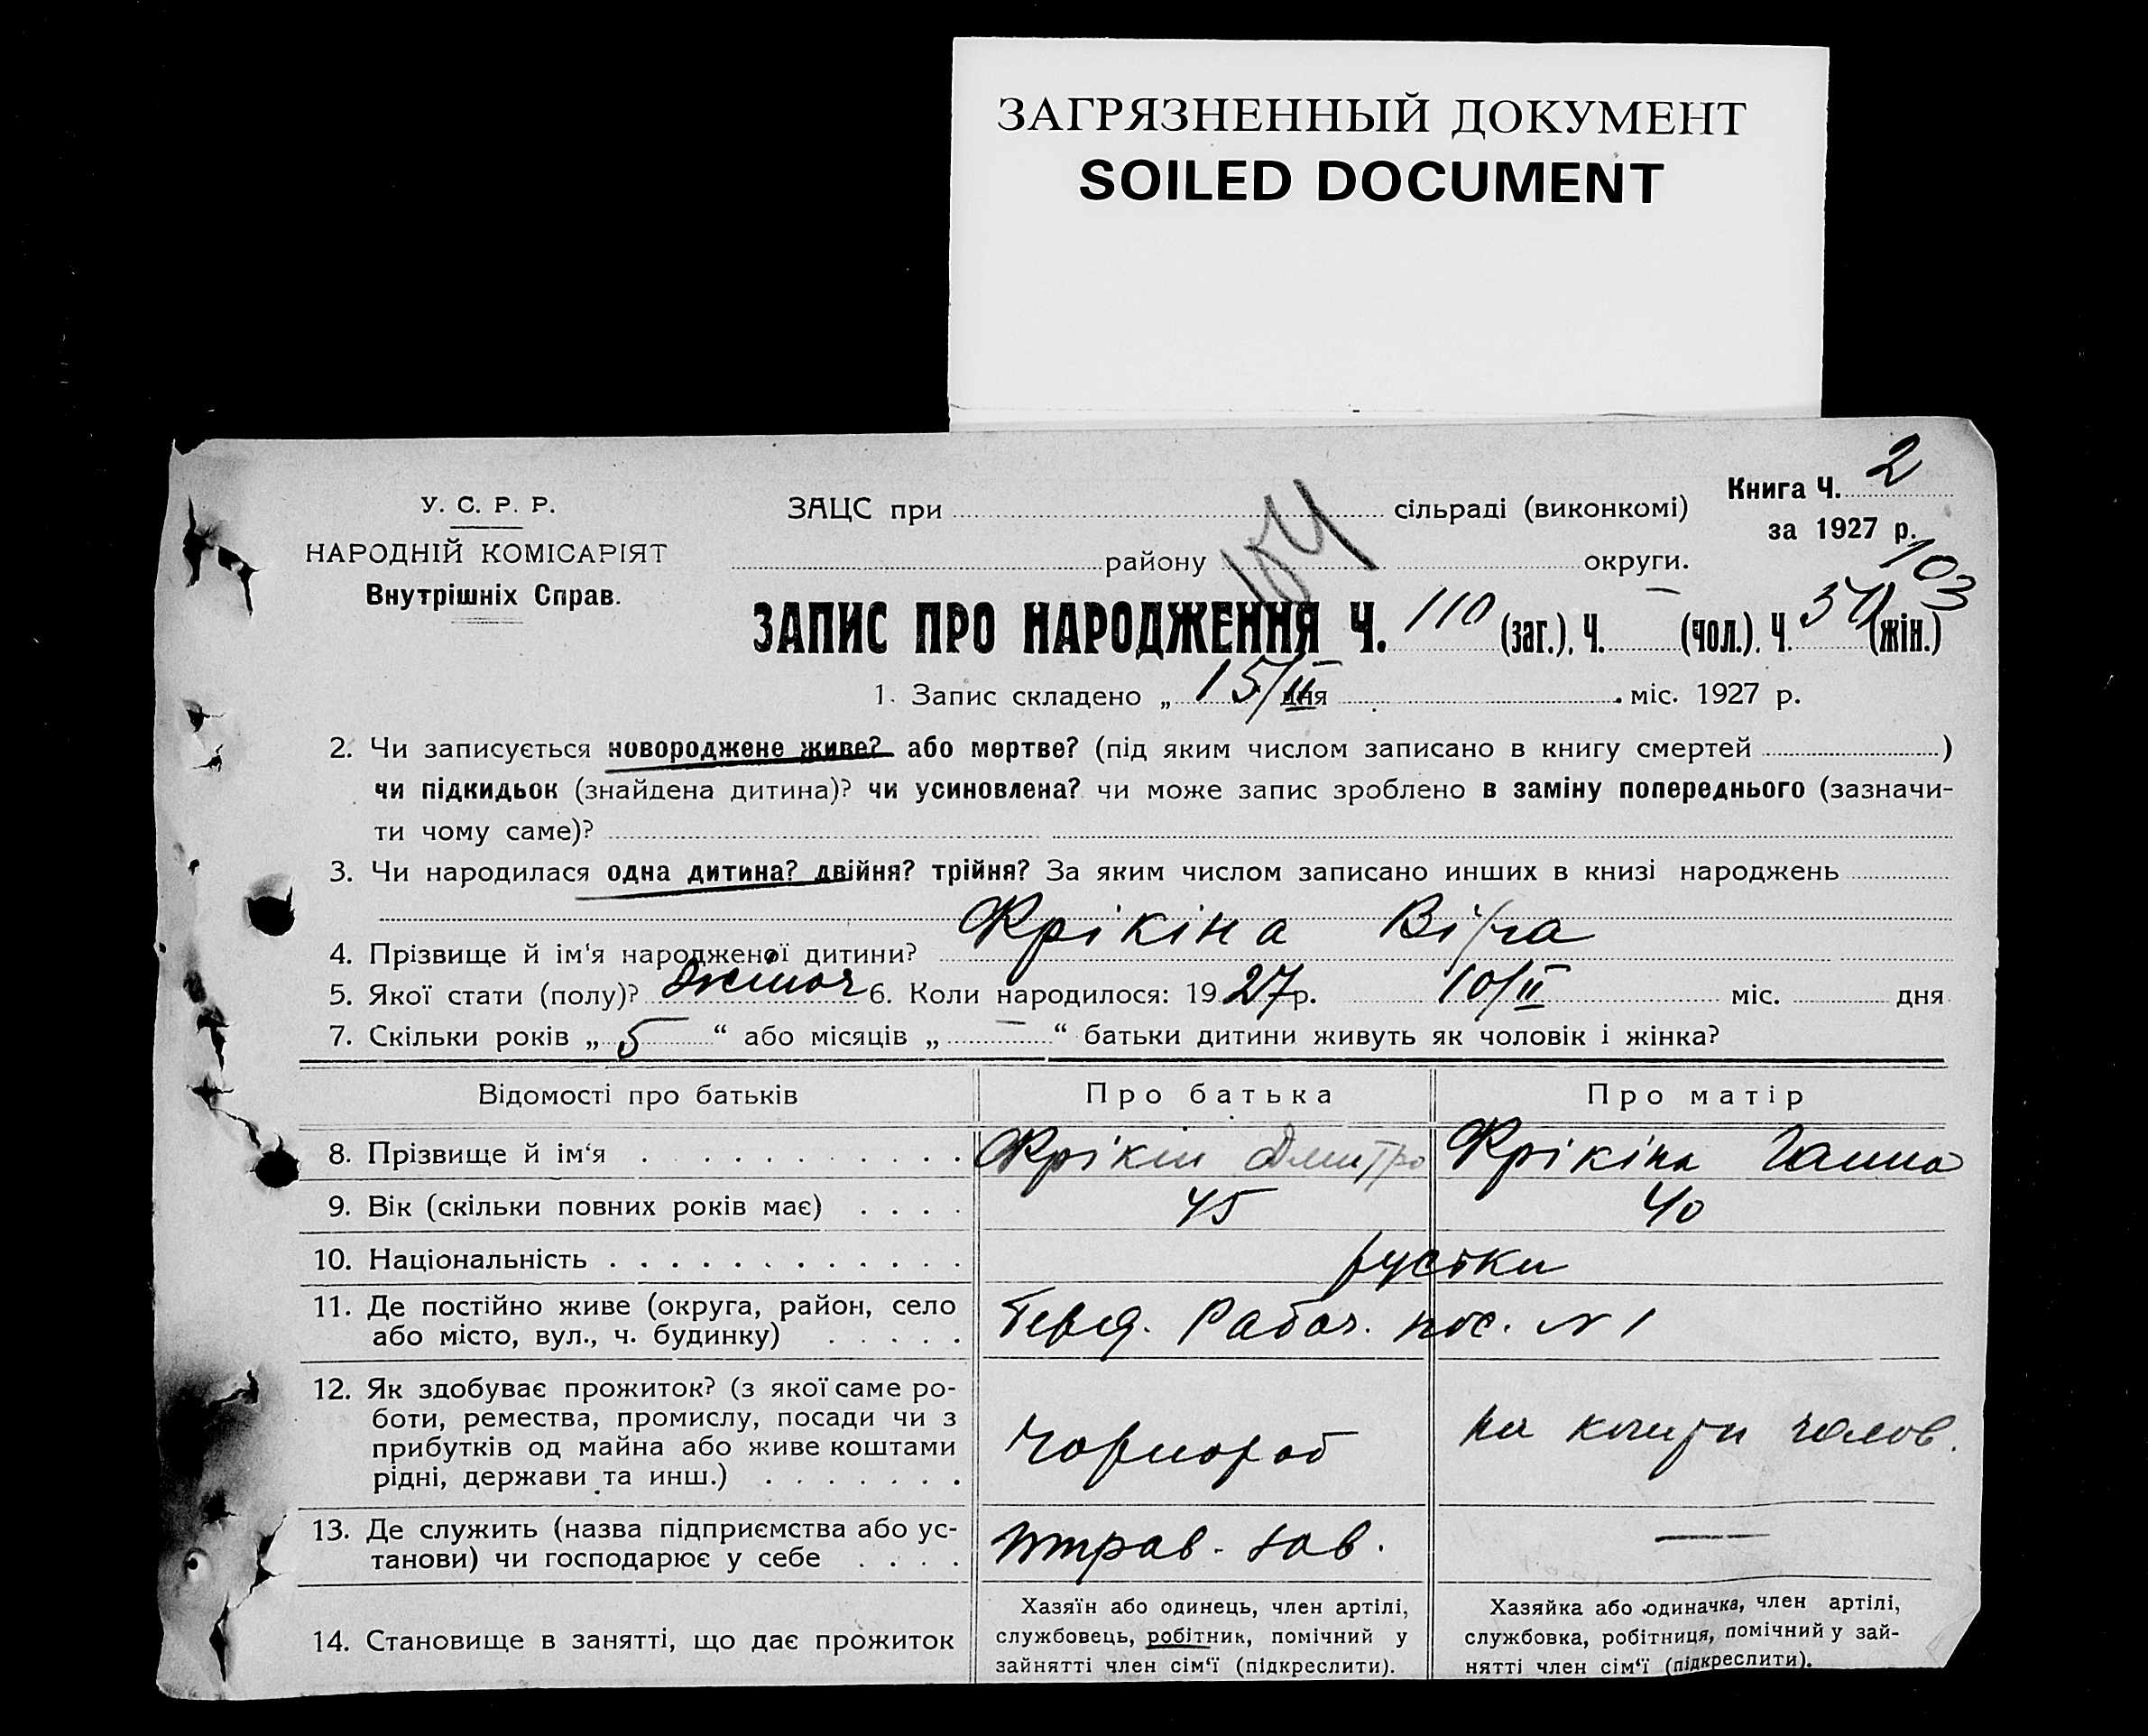 ЗАГРЯЗНЕННЫЙ ДОКУМЕНТ
SOILED DOCUMENT
Книга Ч. 2
за 1927 р.
103
У. С. Р. Р.
НАРОДНІЙ КОМІСАРІЯТ
Внутрішніх Справ.
ЗАЦС при сільраді (виконкомі)
району округи.
104
ЗАПИС ПРО НАРОДЖЕННЯ Ч. 110 (заг.), Ч. — (чол.). Ч. (жін.)
1. Запис складено „ 15/II дня міс. 1927 р.
2. Чи записується новороджене живе? або мертве? (під яким числом записано в книгу смертей )
чи підкидьок (знайдена дитина)? чи усиновлена? чи може запис зроблено в заміну попереднього (зазначи-
ти чому саме)?
3. Чи народилася одна дитина? двійня? трійня? За яким числом записано инших в книзі народжень
4. Прізвище й ім‘я народженої дитини? Крікіна Віра
5. Якої стати (полу)? жіноч 6. Коли народилося: 1927 р. 10/II міс. дня
7. Скільки років „ 5 “ або місяців „ — “ батьки дитини живуть як чоловік і жінка?
Відомості про батьків Про батька Про матір
8. Прізвище й ім‘я Крікін Дмитро Крікіна Ганна
9. Вік (скільки повних років має) 45 40
10. Національність руськи
11. Де постійно живе (округа, район, село
або місто, вул., ч. будинку) Рабоч. пос. N 1
12. Як здобуває прожиток? (з якої саме ро-
боти, ремества, промислу, посади чи з
прибутків од майна або живе коштами
рідні, держави та инш.) Чорнороб на кошти чолов.
13. Де служить (назва підприємства або ус-
танови) чи господарює у себе зав. —
14. Становище в занятті, що дає прожиток
Хазяїн або одинець, член артілі,
службовець, робітник, помічний у
зайнятті член сім‘ї (підкреслити).
Хазяйка або одиначка, член артілі,
службовка, робітниця, помічний у зай-
нятті член сім‘ї (підкреслити).